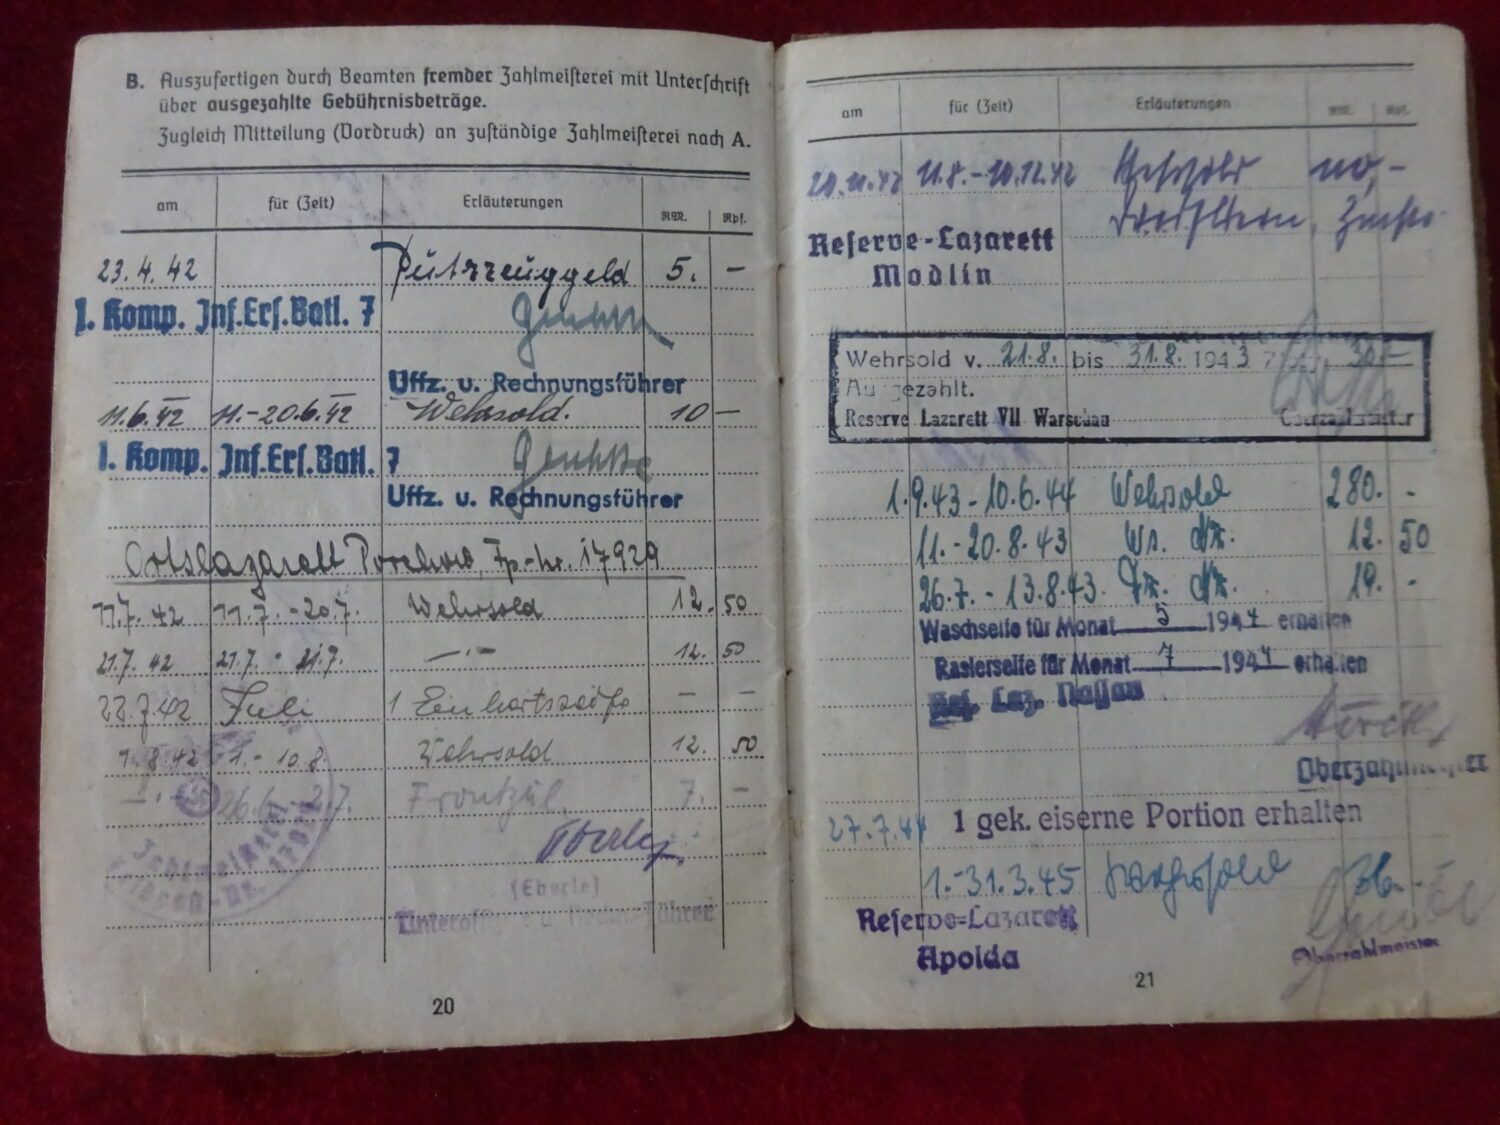 B. Auszufertigen durch Beamten fremder Zahlmeisterei mit Unterschrift
über ausgezahlte Gebührnisbeträge.
Zugleich Mitteilung (Vordruck) an zuständige Zahlmeisterei nach A.
am für (Zeit) Erläuterungen RM. Rpf.
23. 4. 42 Putzzeuggeld 5. —
1. Komp. Inf.Ers.Batl. 7
Uffz. u. Rechnungsführer
11.6. 42 11.-20.6.42 Wehrsold. 10 —
1. Komp. Inf.Ers.Batl. 7
Uffz. u. Rechnungsführer
Ortslazarett Porchow, Fp.-Nr. 17929
11.7. 42 11.7.-20.7. Wehrsold 12. 50
21.7. 42 21.7. - 31.7. —"— 12. 50
22.7.42 Juli 1 Einheitsseife — —
1.8.42 1.- 10.8. Wehrsold 12. 50
—"— 26.6.-2.7. Frontzul. 7. —
Eberle
(Eberle)
Unteroffizier u. Rechn.-Führer
20
am für (Zeit) Erläuterungen RM. Rpf.
20.11.42 11.8.-10.12.42 Wehrsold 110,-
Reserve-Lazarett
Modlin
Wehrsold v. 21.8. bis 31.8. 1943 30.-
Ausgezahlt.
Reserve Lazarett VII Warschau Oberzahlmeister
1.9.43 - 10.6.44 Wehrsold 280. -
11.-20.8.43 Ws. 12. 50
26.7. - 13.8.43 19. -
Waschseife für Monat 5 1944 erhalten
Rasierseife für Monat 7 1944 erhalten
Res. Laz. Nassau
Oberzahlmeister
27.7.44 1 gek. eiserne Portion erhalten
1.-31.3.45 Wehrsold 36. -
Reserve-Lazarett
Apolda
Oberzahlmeister
21